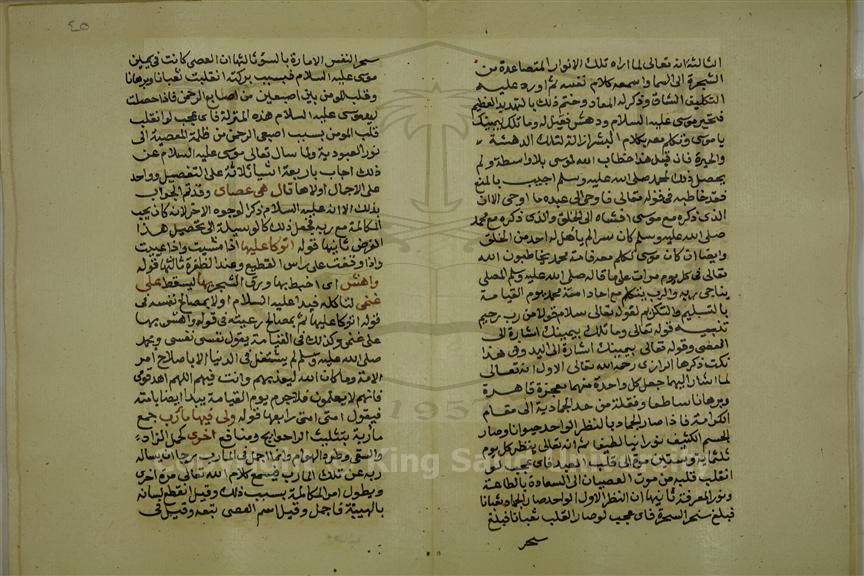 الثالثة انه تعالى لما اراه تلك الانوار المتصاعدة من
الشجرة الى السماء واسمعه كلام نفسه ثم اورد عليه
التكليف الشاق وذكر له المعاد وختم ذلك بالتهديد العظيم
فتحير موسى عليه السلام ودهش فقيل له وما تلك بيمينك
يا موسى وتكلم معه بكلام البشر ازالة لتلك الدهشة
والحيرة فان قيل هذا خطاب الله لموسى بلا واسطة ولم
يحصل ذلك لمحمد صلى الله عليه وسلم اجيب بالمنع
فقد خاطبه في قوله تعالى فاوحى الى عبده ما اوحى الا ان
الذي ذكره مع موسى افشاه الى الخلق والذي ذكره مع محمد
صلى الله عليه وسلم كان سرا لم ياهل له احد من الخلق
وايضا ان كان موسى تكلم معه فامة محمد يخاطبون الله
تعالى في كل يوم مرات على ما قاله صلى الله عليه وسلم المصلي
يناجي ربه والرب يتكلم مع احاد امة محمد يوم القيامة
بالتسليم والتكريم لقوله تعالى سلام قولا من رب رحيم
تنبيه قوله تعالى وما تلك بيمينك اشارة الى
العصى وقوله تعالى بيمينك اشارة الى اليد وفي هذا
نكت ذكرها الرازي رحمه الله تعالى الاولى انه تعالى
لما اشار اليهما جعل كل واحدة منهما معجزة قاهرة
وبرهانا ساطعا ونقله من حد الجمادية الى مقام
الكرامة فاذا صار الجماد بالنظر الواحد حيوانا وصار
الجسم الكثيف نورانيا لطيفا ثم انه تعالى ينظر كل يوم
ثلثمائة وستين مرة الى قلب العبد فاي عجب لو
انقلب قلبه من موت العصيان الى السعادة بالطاعة
ونور المعرفة ثانيها ان النظر الاول الواحد صار الجماد ثعبانا
فبلغ سحر السحرة فاي عجب لو صار القلب ثعبانا فبلغ
سحر
٤٥
سحر النفس الامارة بالسوء ثالثها ان العصى كانت في يمين
موسى عليه السلام فبسبب بركته انقلبت ثعبانا وبرهانا
وقلب المومن بين اصبعين من اصابع الرحمن فاذا حصلت
ليد موسى عليه السلام هذه المنزلة فاي عجب لو انقلب
قلب المومن بسبب اصبعي الرحمن من ظلمة المعصية الى
نور العبودية ولما سال تعالى موسى عليه السلام عن
ذلك اجاب باربعة اشيا ثلاثة على التفصيل وواحد
على الاجمال اولها قال هي عصاي وقد تم الجواب
بذلك الا انه عليه السلام ذكر الوجوه الاخر لانه كان يحب
المكالمة مع ربه فجعل ذلك كالوسيلة الى تحصيل هذا
الغرض ثانيها قوله اتوكا عليها اذا مشيت واذا عييت
واذا وقفت على راس القطيع وعند الطفرة ثالثها قوله
واهش اي اخبط بها ورق الشجر بها ليسقط على
غنمي لتاكله فبدا عليه السلام اولا بمصالح نفسه في
قوله اتوكا عليها ثم بمصالح رعيته في قوله واهش بها
على غنمي وكذلك في القيامة يقول نفسي نفسي ومحمد
صلى الله عليه وسلم لم يشتغل في الدنيا الا باصلاح امر
الامة وما كان الله ليعذبهم وانت فيهم اللهم اهد قومي
فانهم لا يعلمون فلا جرم يوم القيامة يبدا ايضا بامته
فيقول امتي امتي رابعها قوله ولي فيها مارب جمع
مأربة بتثليث الرا حوائج ومنافع اخرى كحمل الزاد
والسقي وطرد الهوام وانما اجمل في المارب رجا ان يساله
ربه عن تلك المارب فيسمع كلام الله تعالى مرة اخرى
ويطول امر المكالمة بسبب ذلك وقيل انقطع لسانه
بالهيبة فاجمل وقيل اسم العصى نبعه وقيل في
King Saud University
1957